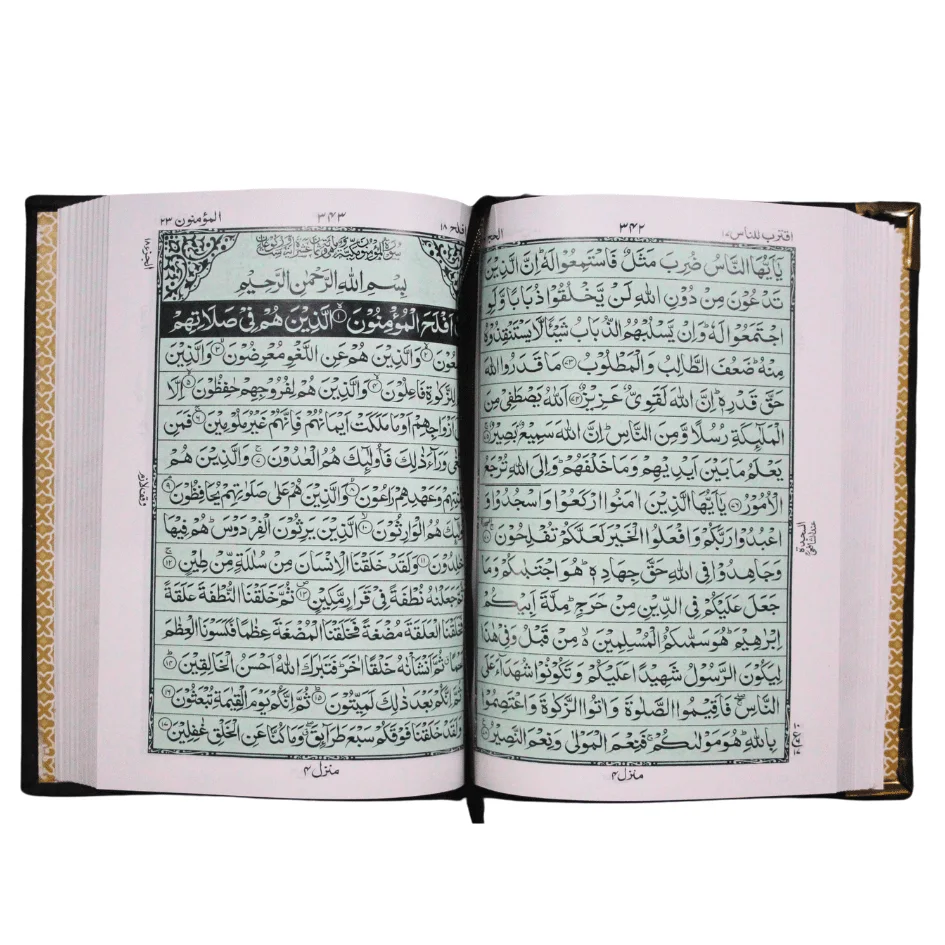 اقترب للناس ١٧
٣٤٢
الحج
يٰۤاَيُّهَا النَّاسُ ضُرِبَ مَثَلٌ فَاسْتَمِعُوْا لَهٗ ؕ اِنَّ الَّذِيْنَ
تَدْعُوْنَ مِنْ دُوْنِ اللّٰهِ لَنْ يَّخْلُقُوْا ذُبَابًا وَّلَوِ
اجْتَمَعُوْا لَهٗ ؕ وَاِنْ يَّسْلُبْهُمُ الذُّبَابُ شَيْـًٔا لَّا يَسْتَنْقِذُوْهُ
مِنْهُ ؕ ضَعُفَ الطَّالِبُ وَالْمَطْلُوْبُ ﴿٧٣﴾ مَا قَدَرُوا اللّٰهَ
حَقَّ قَدْرِهٖ ؕ اِنَّ اللّٰهَ لَقَوِىٌّ عَزِيْزٌ ﴿٧٤﴾ اَللّٰهُ يَصْطَفِىْ مِنَ
الْمَلٰٓئِكَةِ رُسُلًا وَّمِنَ النَّاسِ ؕ اِنَّ اللّٰهَ سَمِيْعٌۢ بَصِيْرٌ ﴿٧٥﴾
يَعْلَمُ مَا بَيْنَ اَيْدِيْهِمْ وَمَا خَلْفَهُمْ ؕ وَاِلَى اللّٰهِ تُرْجَعُ
الْاُمُوْرُ ﴿٧٦﴾ يٰۤاَيُّهَا الَّذِيْنَ اٰمَنُوا ارْكَعُوْا وَاسْجُدُوْا وَ
اعْبُدُوْا رَبَّكُمْ وَافْعَلُوا الْخَيْرَ لَعَلَّكُمْ تُفْلِحُوْنَ ﴿٧٧﴾
وَجَاهِدُوْا فِى اللّٰهِ حَقَّ جِهَادِهٖ ؕ هُوَ اجْتَبٰىكُمْ وَمَا
جَعَلَ عَلَيْكُمْ فِى الدِّيْنِ مِنْ حَرَجٍ ؕ مِلَّةَ اَبِيْكُمْ
اِبْرٰهِيْمَ ؕ هُوَ سَمّٰىكُمُ الْمُسْلِمِيْنَ ۙ مِنْ قَبْلُ وَفِىْ هٰذَا
لِيَكُوْنَ الرَّسُوْلُ شَهِيْدًا عَلَيْكُمْ وَتَكُوْنُوْا شُهَدَآءَ عَلَى
النَّاسِ ۖ فَاَقِيْمُوا الصَّلٰوةَ وَاٰتُوا الزَّكٰوةَ وَاعْتَصِمُوْا
بِاللّٰهِ ؕ هُوَ مَوْلٰىكُمْ ۚ فَنِعْمَ الْمَوْلٰى وَنِعْمَ النَّصِيْرُ ﴿٧٨﴾
السجدة
منزل ٤
افلح ١٨
٣٤٣
المؤمنون ٢٣
بِسْمِ اللّٰهِ الرَّحْمٰنِ الرَّحِيْمِ
اَفْلَحَ الْمُؤْمِنُوْنَ ﴿١﴾ الَّذِيْنَ هُمْ فِىْ صَلَاتِهِمْ
وَالَّذِيْنَ هُمْ عَنِ اللَّغْوِ مُعْرِضُوْنَ ﴿٣﴾ وَالَّذِيْنَ
لِلزَّكٰوةِ فَاعِلُوْنَ ﴿٤﴾ وَالَّذِيْنَ هُمْ لِفُرُوْجِهِمْ حٰفِظُوْنَ ﴿٥﴾ اِلَّا
اَزْوَاجِهِمْ اَوْ مَا مَلَكَتْ اَيْمَانُهُمْ فَاِنَّهُمْ غَيْرُ مَلُوْمِيْنَ ﴿٦﴾ فَمَنِ
وَرَآءَ ذٰلِكَ فَاُولٰٓئِكَ هُمُ الْعٰدُوْنَ ﴿٧﴾ وَالَّذِيْنَ هُمْ
وَعَهْدِهِمْ رَاعُوْنَ ﴿٨﴾ وَالَّذِيْنَ هُمْ عَلٰى صَلَوٰتِهِمْ يُحَافِظُوْنَ ﴿٩﴾
هُمُ الْوَارِثُوْنَ ﴿١٠﴾ الَّذِيْنَ يَرِثُوْنَ الْفِرْدَوْسَ ؕ هُمْ فِيْهَا
خٰلِدُوْنَ ﴿١١﴾ وَلَقَدْ خَلَقْنَا الْاِنْسَانَ مِنْ سُلٰلَةٍ مِّنْ طِيْنٍ ﴿١٢﴾
جَعَلْنٰهُ نُطْفَةً فِىْ قَرَارٍ مَّكِيْنٍ ﴿١٣﴾ ثُمَّ خَلَقْنَا النُّطْفَةَ عَلَقَةً
فَخَلَقْنَا الْعَلَقَةَ مُضْغَةً فَخَلَقْنَا الْمُضْغَةَ عِظٰمًا فَكَسَوْنَا الْعِظٰمَ
ثُمَّ اَنْشَاْنٰهُ خَلْقًا اٰخَرَ ؕ فَتَبٰرَكَ اللّٰهُ اَحْسَنُ الْخَالِقِيْنَ ﴿١٤﴾
ثُمَّ اِنَّكُمْ بَعْدَ ذٰلِكَ لَمَيِّتُوْنَ ﴿١٥﴾ ثُمَّ اِنَّكُمْ يَوْمَ الْقِيٰمَةِ تُبْعَثُوْنَ ﴿١٦﴾
وَلَقَدْ خَلَقْنَا فَوْقَكُمْ سَبْعَ طَرَآئِقَ ۖ وَمَا كُنَّا عَنِ الْخَلْقِ غٰفِلِيْنَ ﴿١٧﴾
الجزء ١٨
منزل ٤